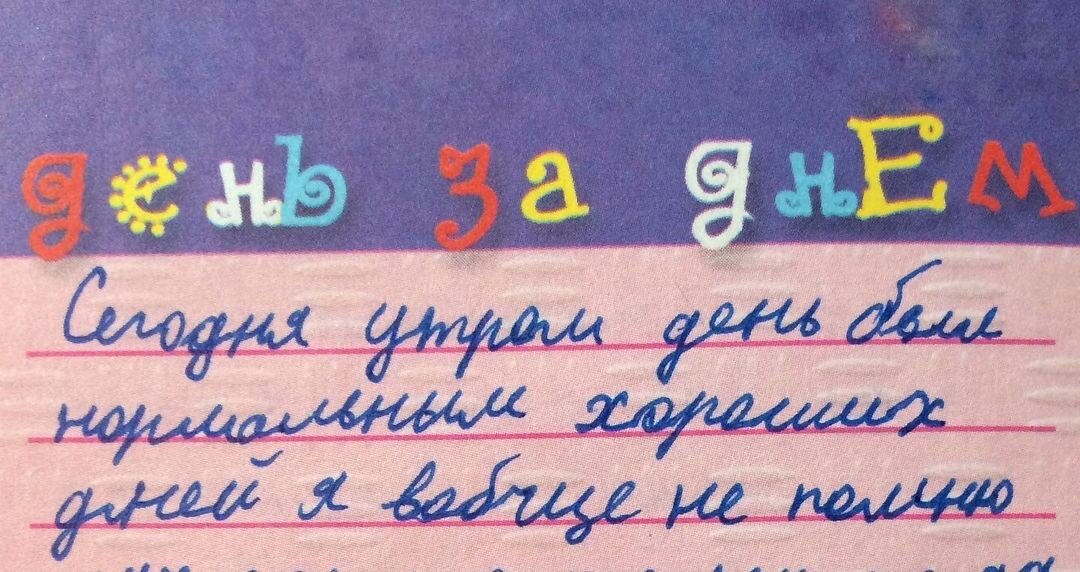 день за днЕм
Сегодня утром день был
нормальным хороших
дней я вобчще не помню